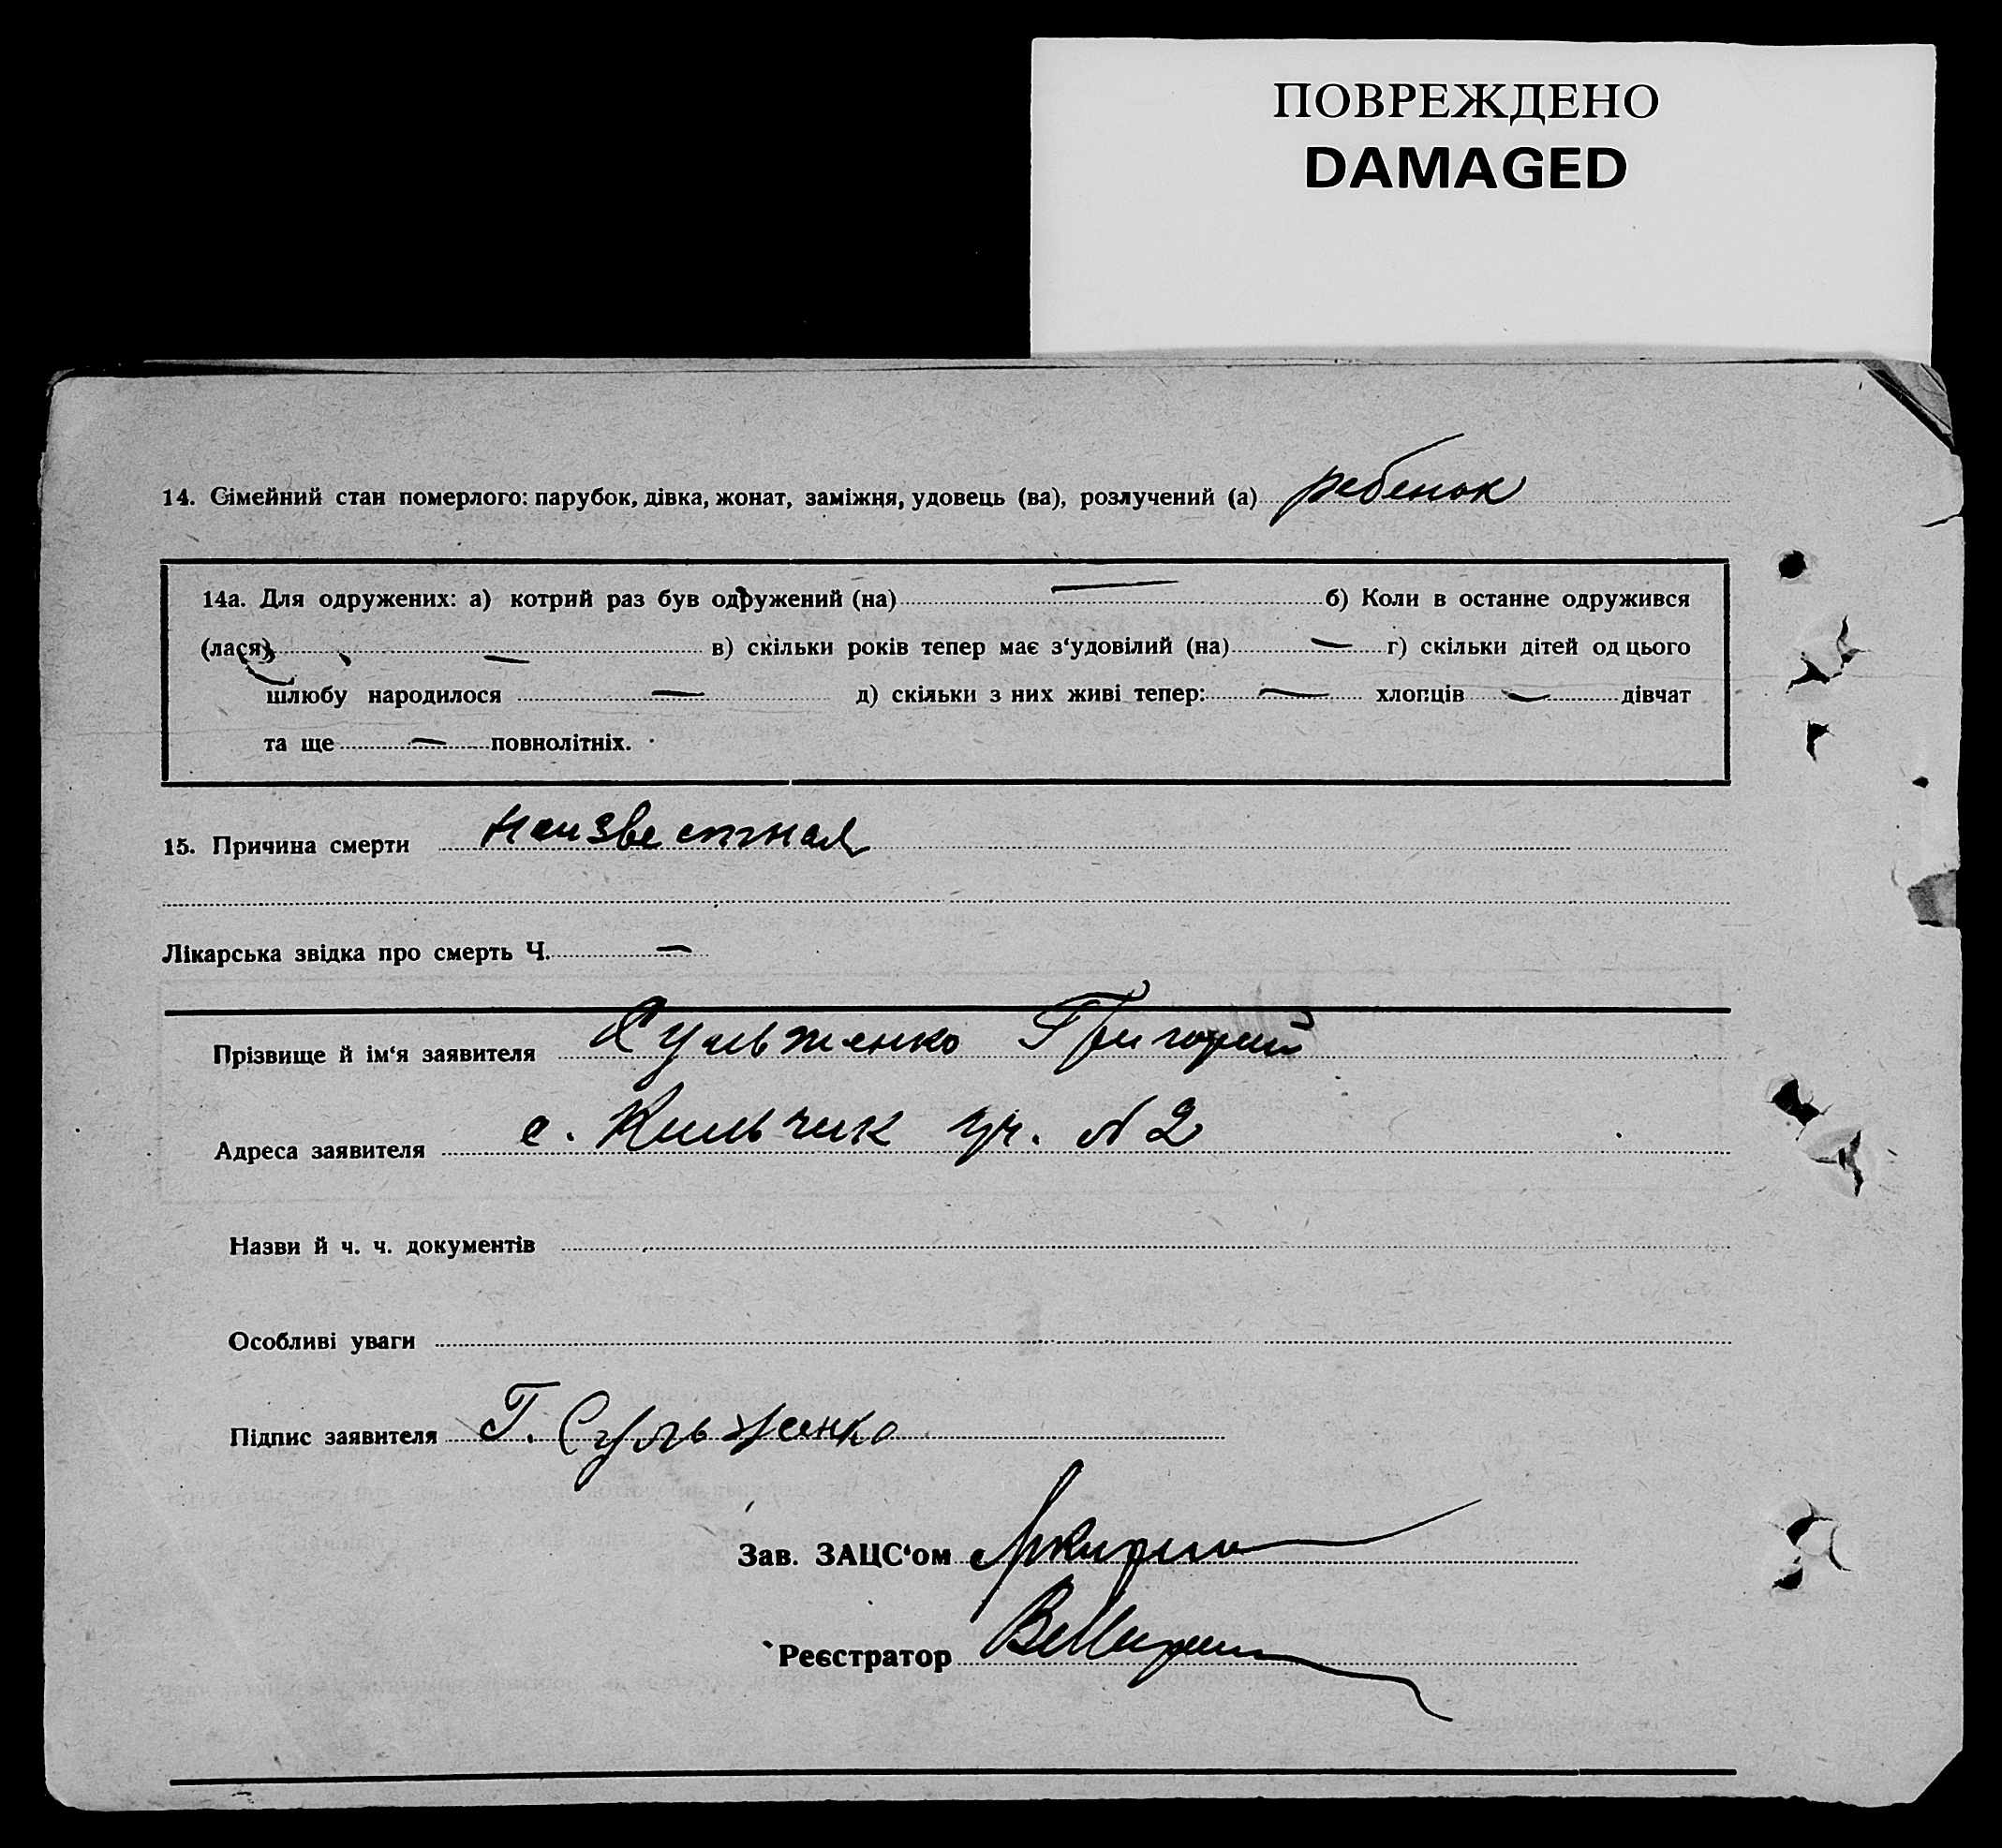 ПОВРЕЖДЕНО
DAMAGED
14. Сімейний стан померлого: парубок, дівка, жонат, заміжня, удовець (ва), розлучений (а) ребенок
14а. Для одружених: а) котрий раз був одружений (на) — б) Коли в останнє одружився
(лася), — в) скільки років тепер має з‘удовілий (на) — г) скільки дітей од цього
шлюбу народилося — д) скільки з них живі тепер: — хлопців — дівчат
та ще — повнолітніх.
15. Причина смерти неизвестная
Лікарська звідка про смерть Ч. —
Прізвище й ім‘я заявителя Сульженко Григорий
Адреса заявителя с. Кильчик уч. №2
Назви й ч. ч. документів
Особливі уваги
Підпис заявителя Г. Сульженко
Зав. ЗАЦС‘ом
Реєстратор